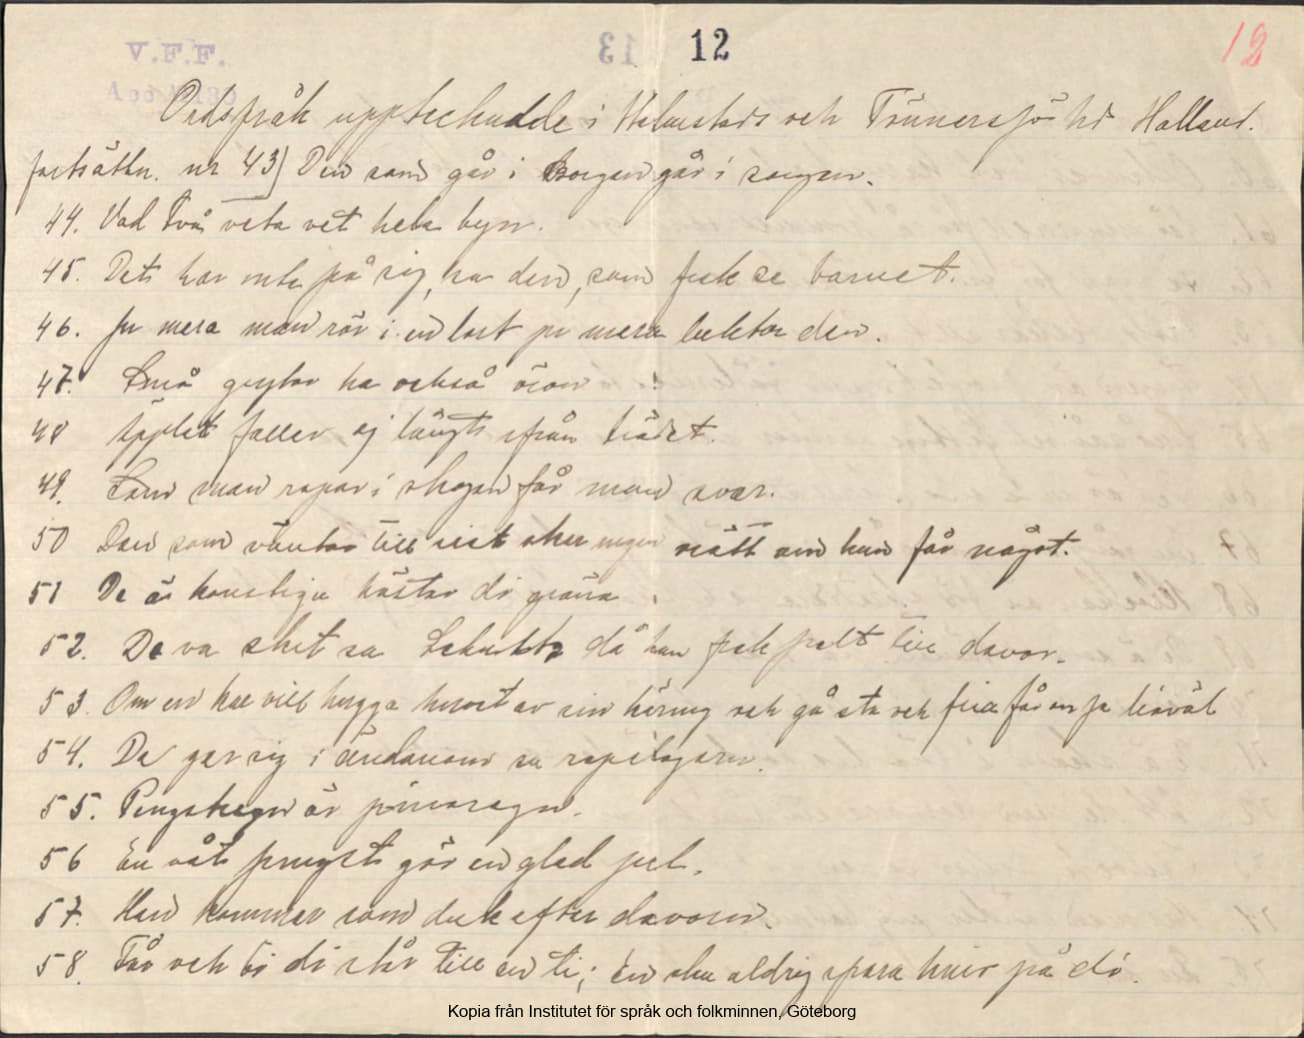 V.F.F. 12 12
Ordspråk upptecknadde i Halmstads och Tönnersjö hd Halland.
fortsättn. nr 43) Den som går i borgen går i sorgen.
44. Vad två veta vet hela byn.
45. Det har inte på sig, sa den, som fick se barnet.
46. Ju mera man rör i en lort ju mera luktar den.
47. Små grytor ha också öron
48 Äpplet faller ej långt ifrån trädet.
49. Som man ropar i skogen får man svar.
50 Den som väntar till sist sker ingen orätt om han får något.
51 De ä konstiga hästar di gråna.
52. De va skit sa då han fick palt till davor.
53. Om en kal vill hugga huvet av sin käring och gå sta och fria får en ja liaväl
54. De ger sig i ändanom sa repslagarn.
55. Pingstregn är
56 En våt pingst gör en glad jul.
57. Han kommer som duk efter davorn.
58. Får och bi di står till en ti; En ska aldrig spara huer på di.
Kopia från Institutet för språk och folkminnen, Göteborg